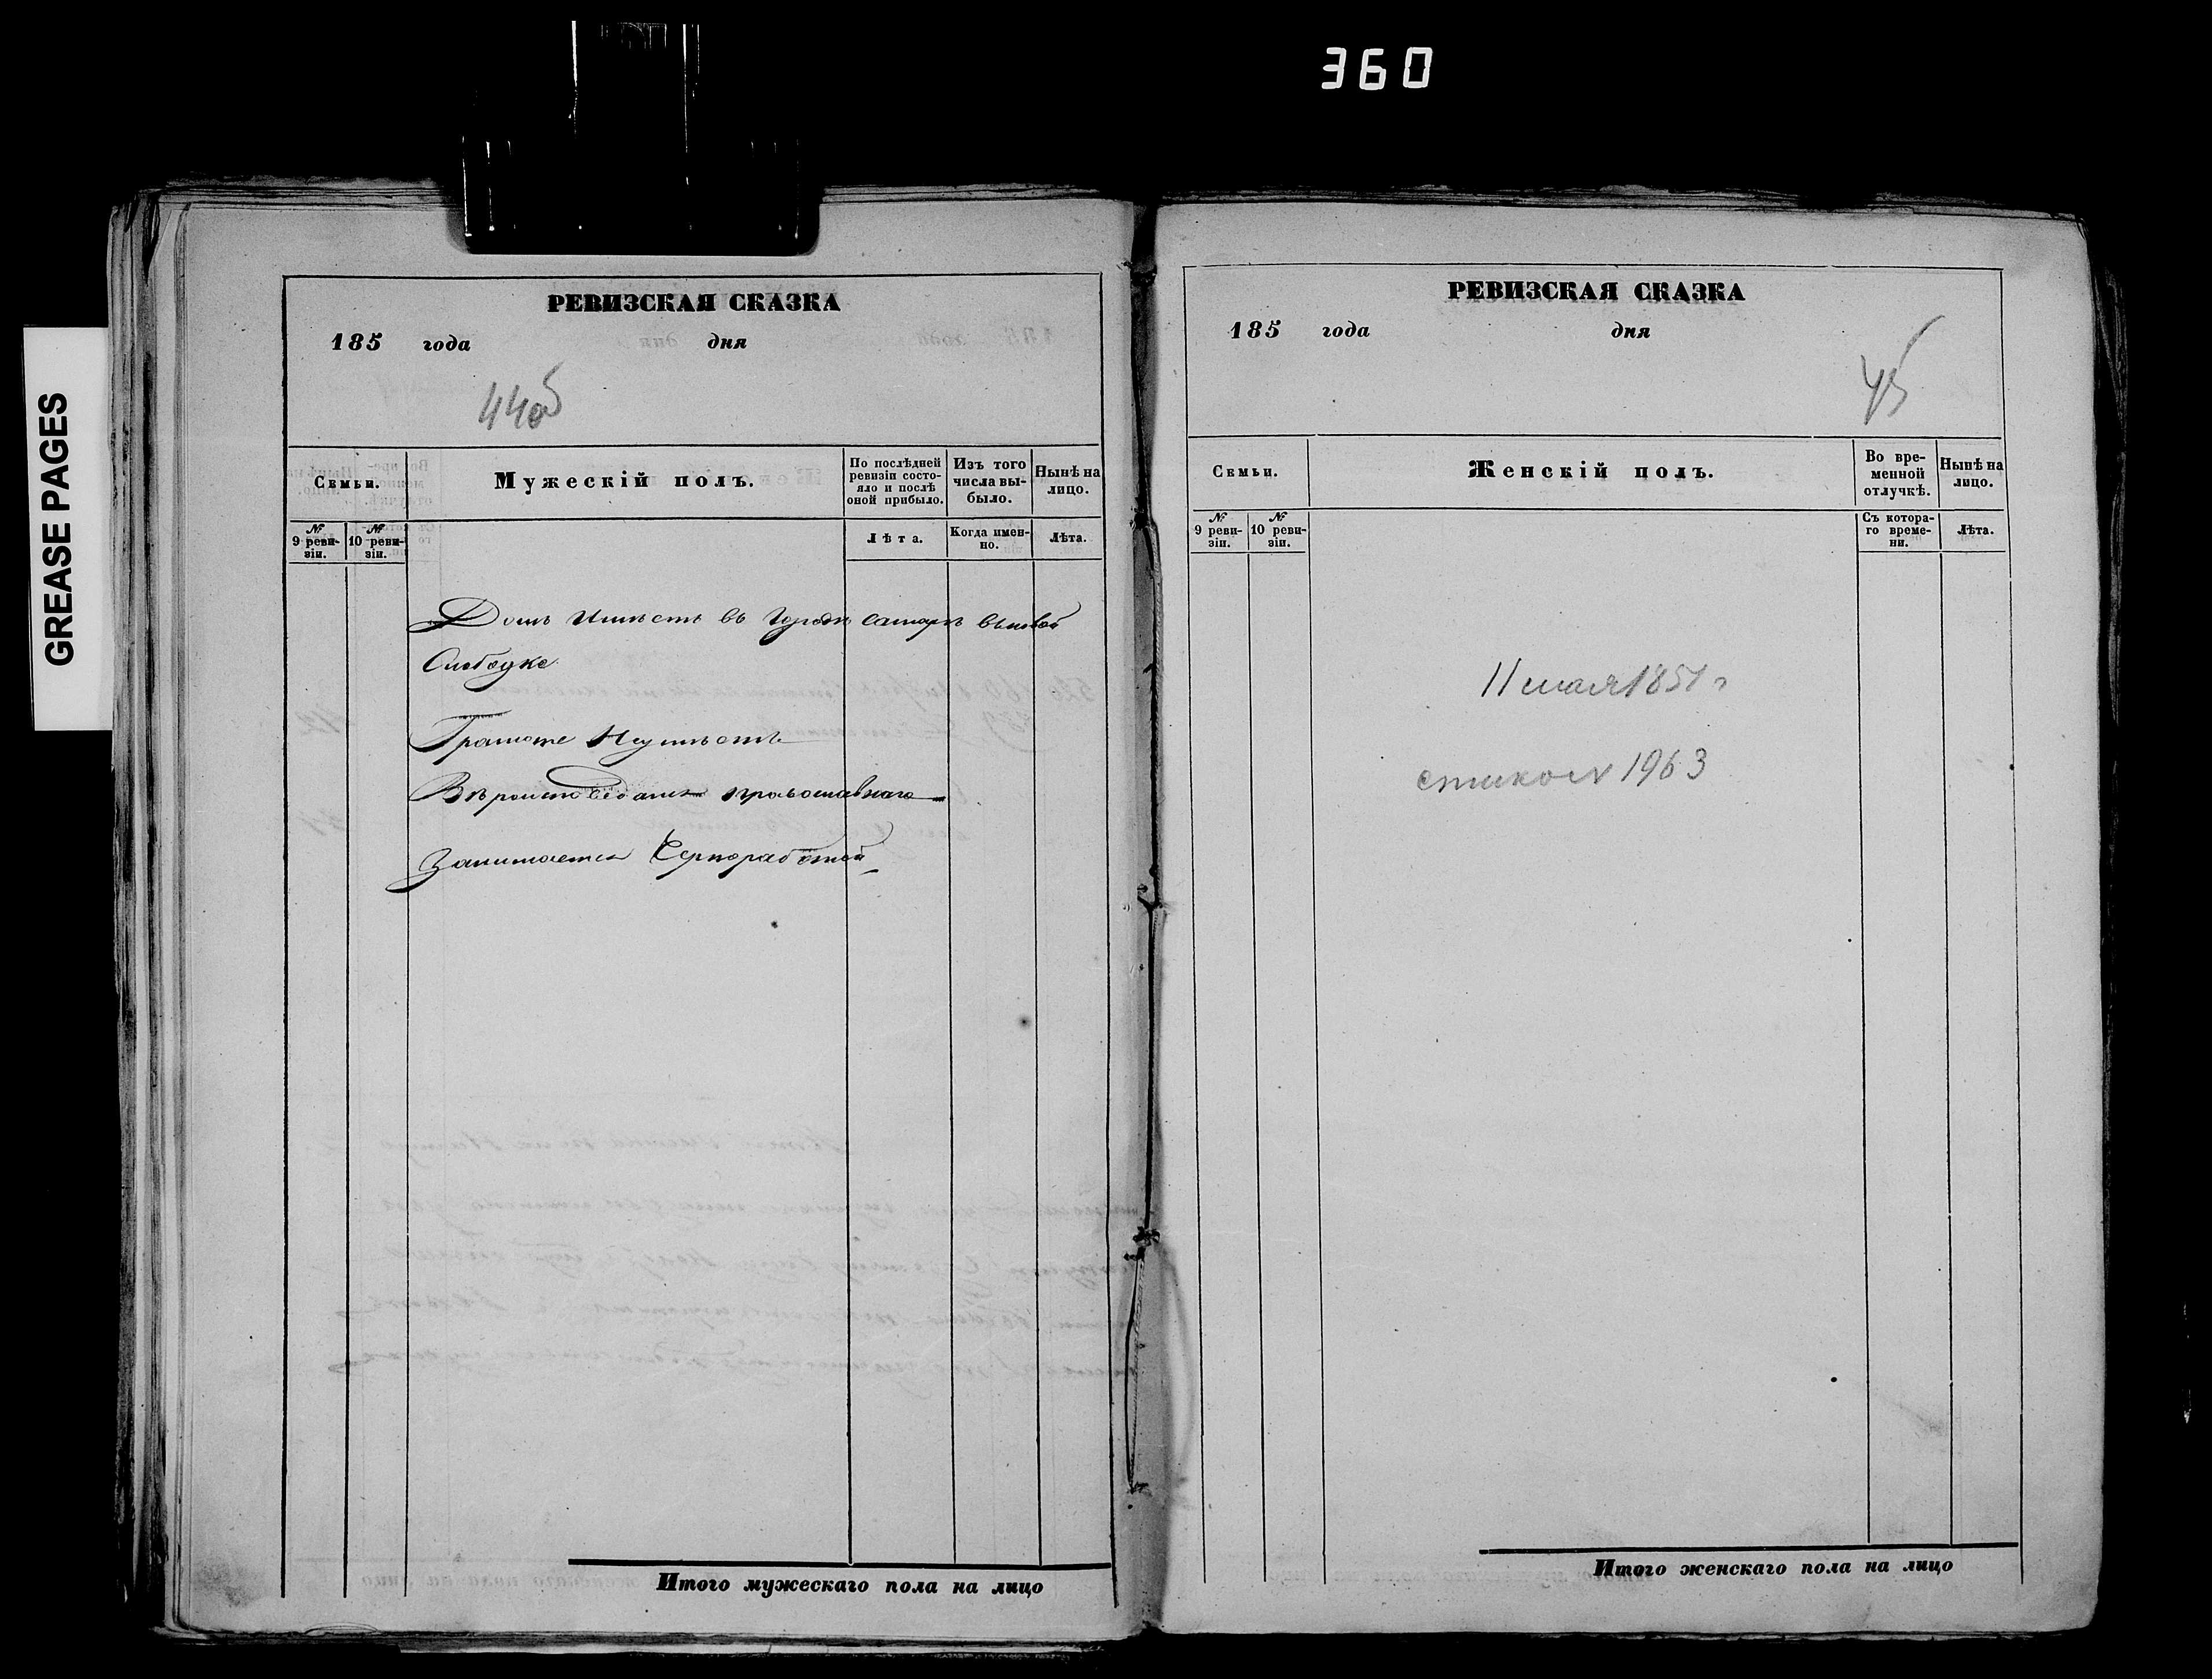 360
GREASE PAGES
РЕВИЗСКАЯ СКАЗКА
185 года дня
44об
Семьи.
Мужескій полъ.
По послѣдней ревизіи состояло и послѣ оной прибыло.
Изъ того числа выбыло.
Нынѣ на лицо.
№ 9 ревизіи.
№ 10 ревизіи.
Лѣта.
Когда именно.
Лѣта.
Домъ имѣетъ въ городѣ самарѣ
Слободке
Грамоте Неумѣетъ
Вѣроисповѣданія православнаго
Занимается Чернорабочей
Итого мужескаго пола на лицо
РЕВИЗСКАЯ СКАЗКА
185 года дня
45
Семьи.
Женскій полъ.
Во временной отлучкѣ.
Нынѣ на лицо.
№ 9 ревизіи.
№ 10 ревизіи.
Съ котораго времени.
Лѣта.
11 мая 185 г
1963
Итого женскаго пола на лицо